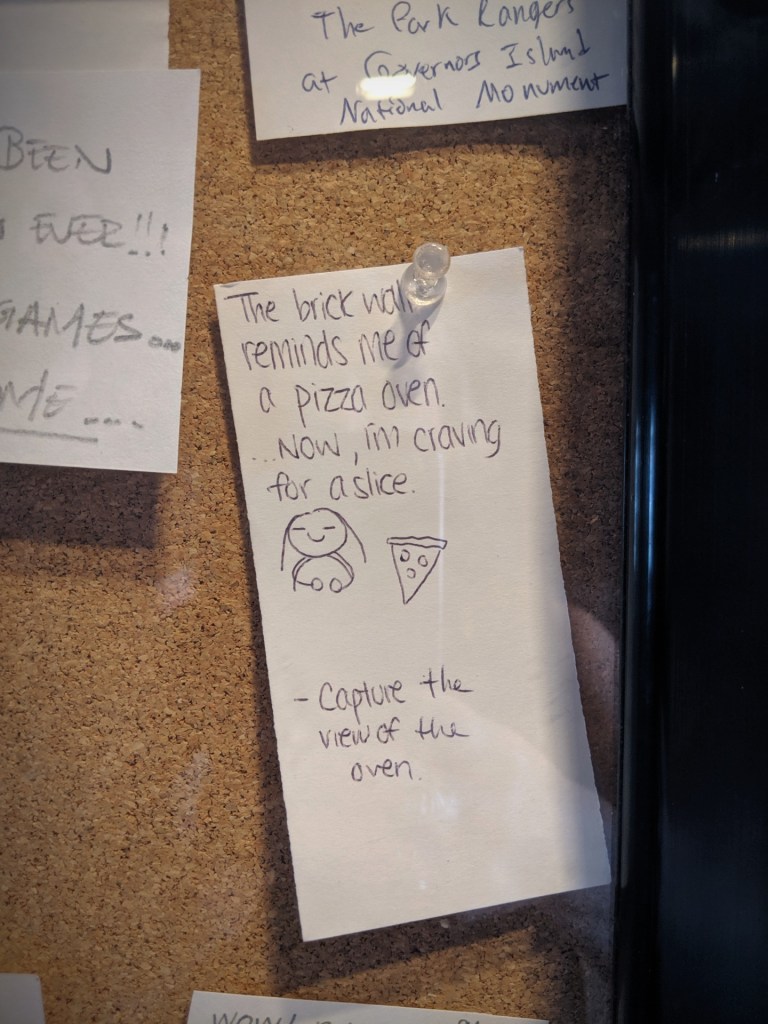 The Park Rangers
at Governors Island
National Monument
BEEN
EVER!!!
GAMES...
ME....
The brick wall
reminds me of
a pizza oven.
...NOW, i'm craving
for a slice.
- Capture the
view of the
oven.
WOW!